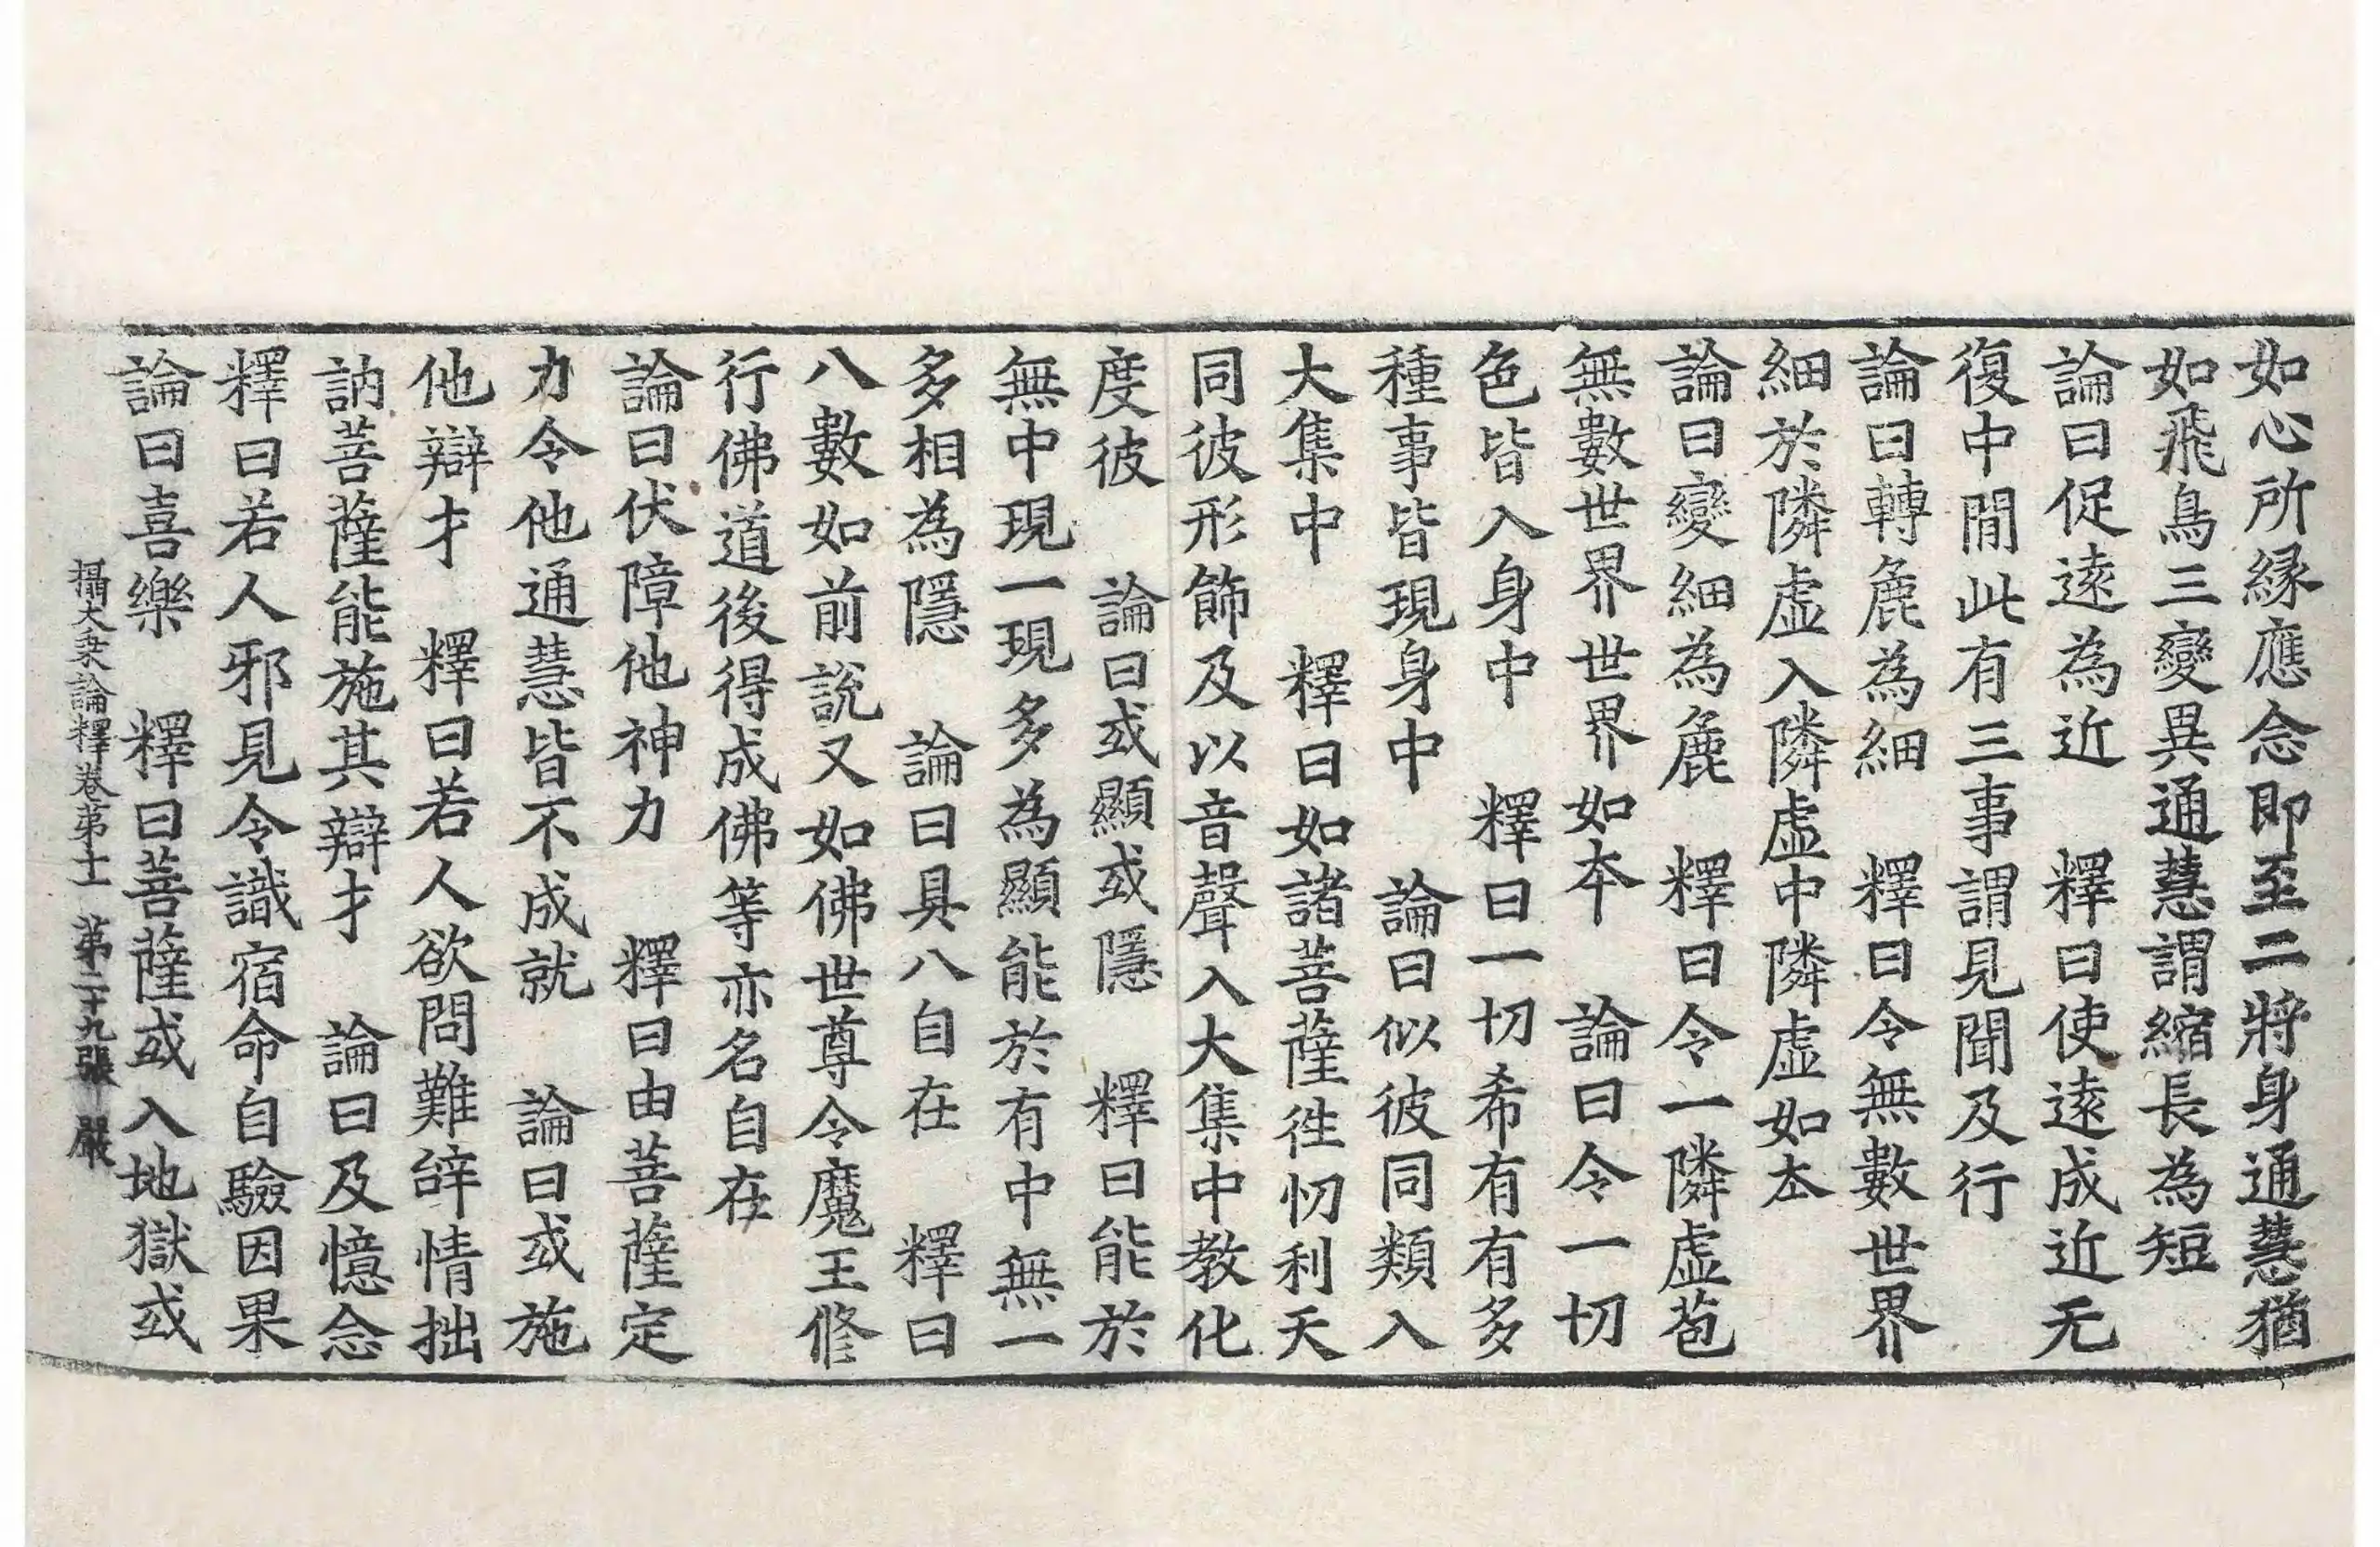 如心所縁應念即至二將身通慧猶
如飛鳥三變異通慧謂縮長為短
論曰促遠為近　釋曰使遠成近无
復中間此有三事謂見聞及行
論曰轉麁為細　釋曰令無數世界
細於隣虚入隣虚中隣虚如本
論曰變細為麁　釋曰令一隣虚苞
無數世界世界如本　論曰令一切
色皆入身中　釋曰一切希有有多
種事皆現身中　論曰似彼同類入
大集中　釋曰如諸菩薩徃忉利天
同彼形飾及以音聲入大集中教化
度彼　論曰或顯或隱　釋曰能於
無中現一現多為顯能於有中無一
多相為隱　論曰具八自在　釋曰
八數如前說又如佛世尊令魔王修
行佛道後得成佛等亦名自在
論曰伏障他神力　釋曰由菩薩定
力令他通慧皆不成就　論曰或施
他辯才　釋曰若人欲問難辝情拙
訥菩薩能施其辯才　論曰及憶念
釋曰若人邪見令識宿命自驗因果
論曰喜樂　釋曰菩薩或入地獄或
攝大乗論釋卷第十一　第二十九張　嚴